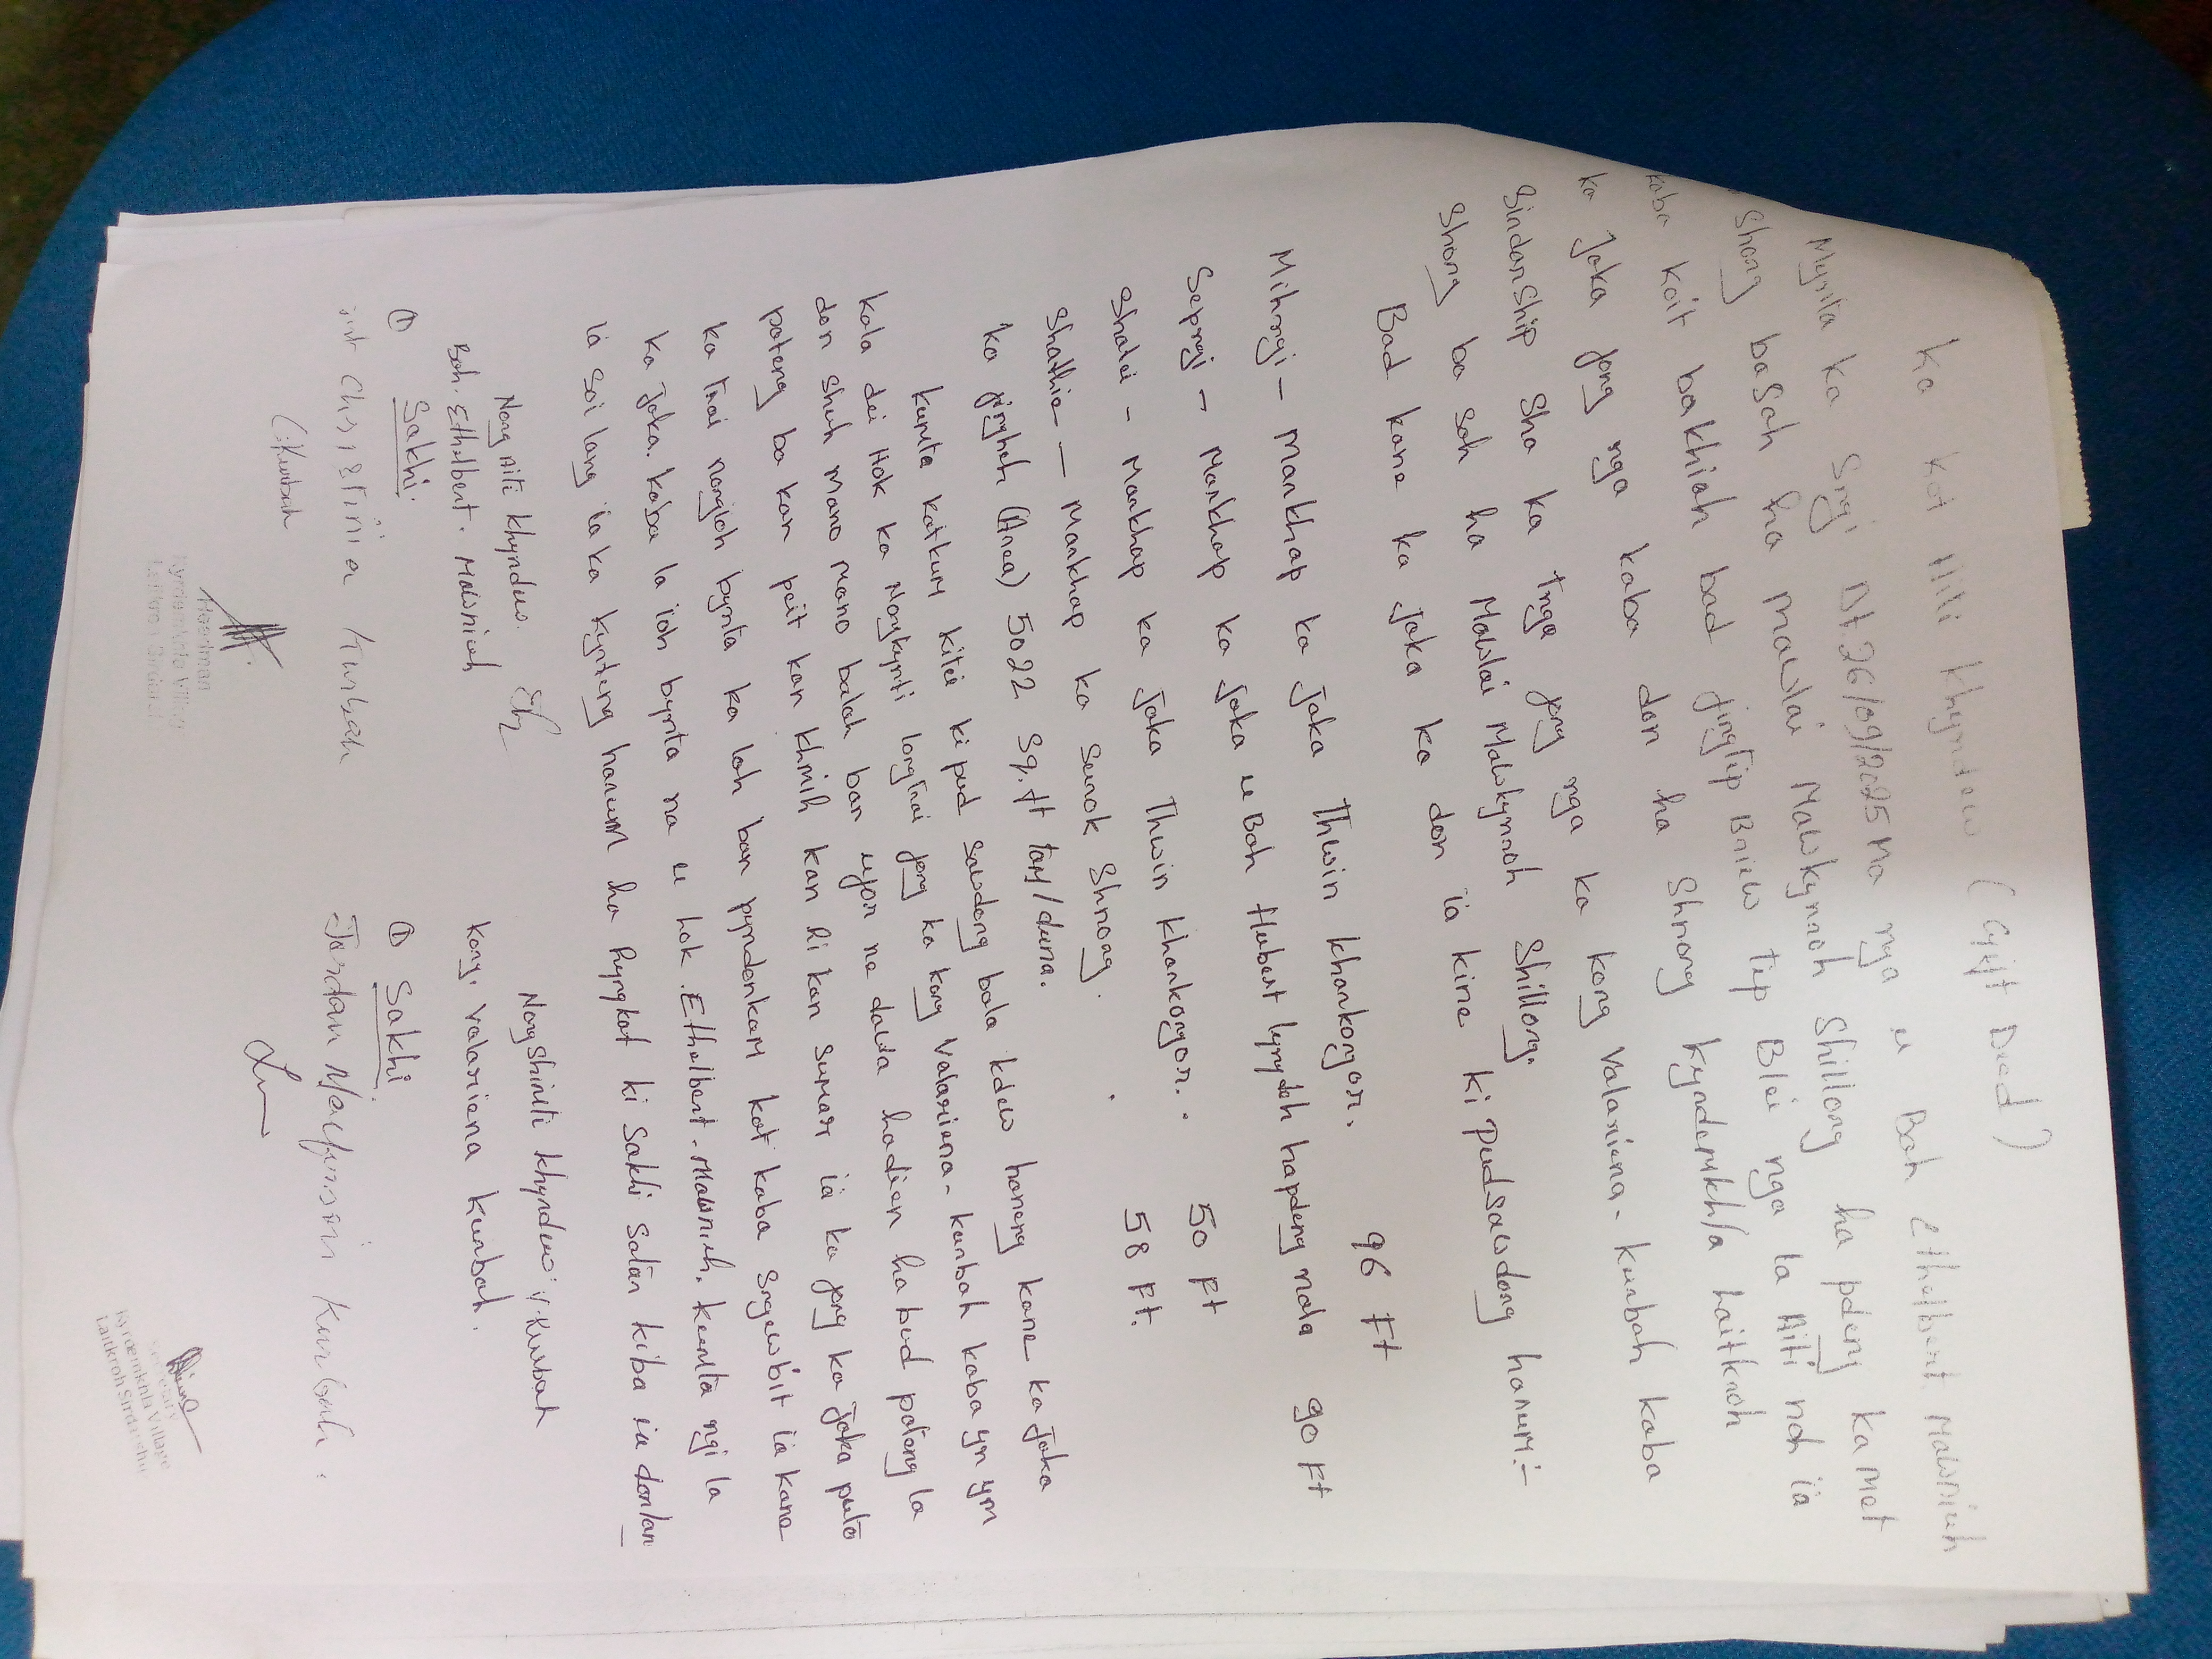 Ka kot Aiti khyndew (Gift Deed)
Mynta ka Sngi Dt. 26/09/2025 Na nga u Bah Ethelbert Mawnieh
Shong basah ha mawlai Mawkynroh Shillong ha pdeng ka Met
kaba koit bakhiah bad jingtip Briew tip Blei nga la Aiti noh ïa
ka Jaka jong nga kaba don ha Shnong kynderukhla Laitkroh
Sirdarship sha ka tnga jong nga ka kong valariena - kurbah kaba
Shong ba sah ha Mawlai Mawkynroh Shillong.
Bad kane ka Jaka ka don ïa kine ki pudsawdong harum:-
Mihngi - markhap ka Jaka Thwin khonkongor. 96 Ft
Sepngi - Markhap ka Jaka u Bah Hubert lyngdoh hapdeng nala 90 Ft
Shatei - Markhap ka Jaka Thwin khonkongor. 50 Ft
Shathie - Markhap ka surok Shnong. 58 Ft.
ka jingheh (Area) 5022 Sq.ft tam/duna.
kumta katkum kitei ki pud sawdong bala kdew haneng kane ka Jaka
kala dei Hok ka Nongkynti longtrai jong ka kong Valariena - kurbah kaba ym ym
don shuh mano mano balah ban ujor ne dawa hadien habud pateng la
pateng ba kan peit kan khmih kan ri kan sumar ïa ka jong ka Jaka puta
ka trai nongioh bynta ka lah ban pyndonkam kat kaba sngewbit ïa kane
ka Jaka. kaba la ioh bynta na u hok Ethelbert. Mawnieh. kumta ngi la
ïa soi lang ïa ka kynteng harum ha khmat ki Sakhi Satar kiba ïa donlan
Nong Aiti khyndew.
Bah. Ethelbert. Mawnieh
Nongshimti khyndew: V. Kurbah
Kong. Valariena kurbah.
① Sakhi:
Christina Kurbah
C. Kurbah
① Sakhi.
Jordan Kurbah.
Headman
Kynderukhla Village
Laitkroh Sirdarship
Secretary
Kyrdemkhla Village
Laitkroh Sirdarship